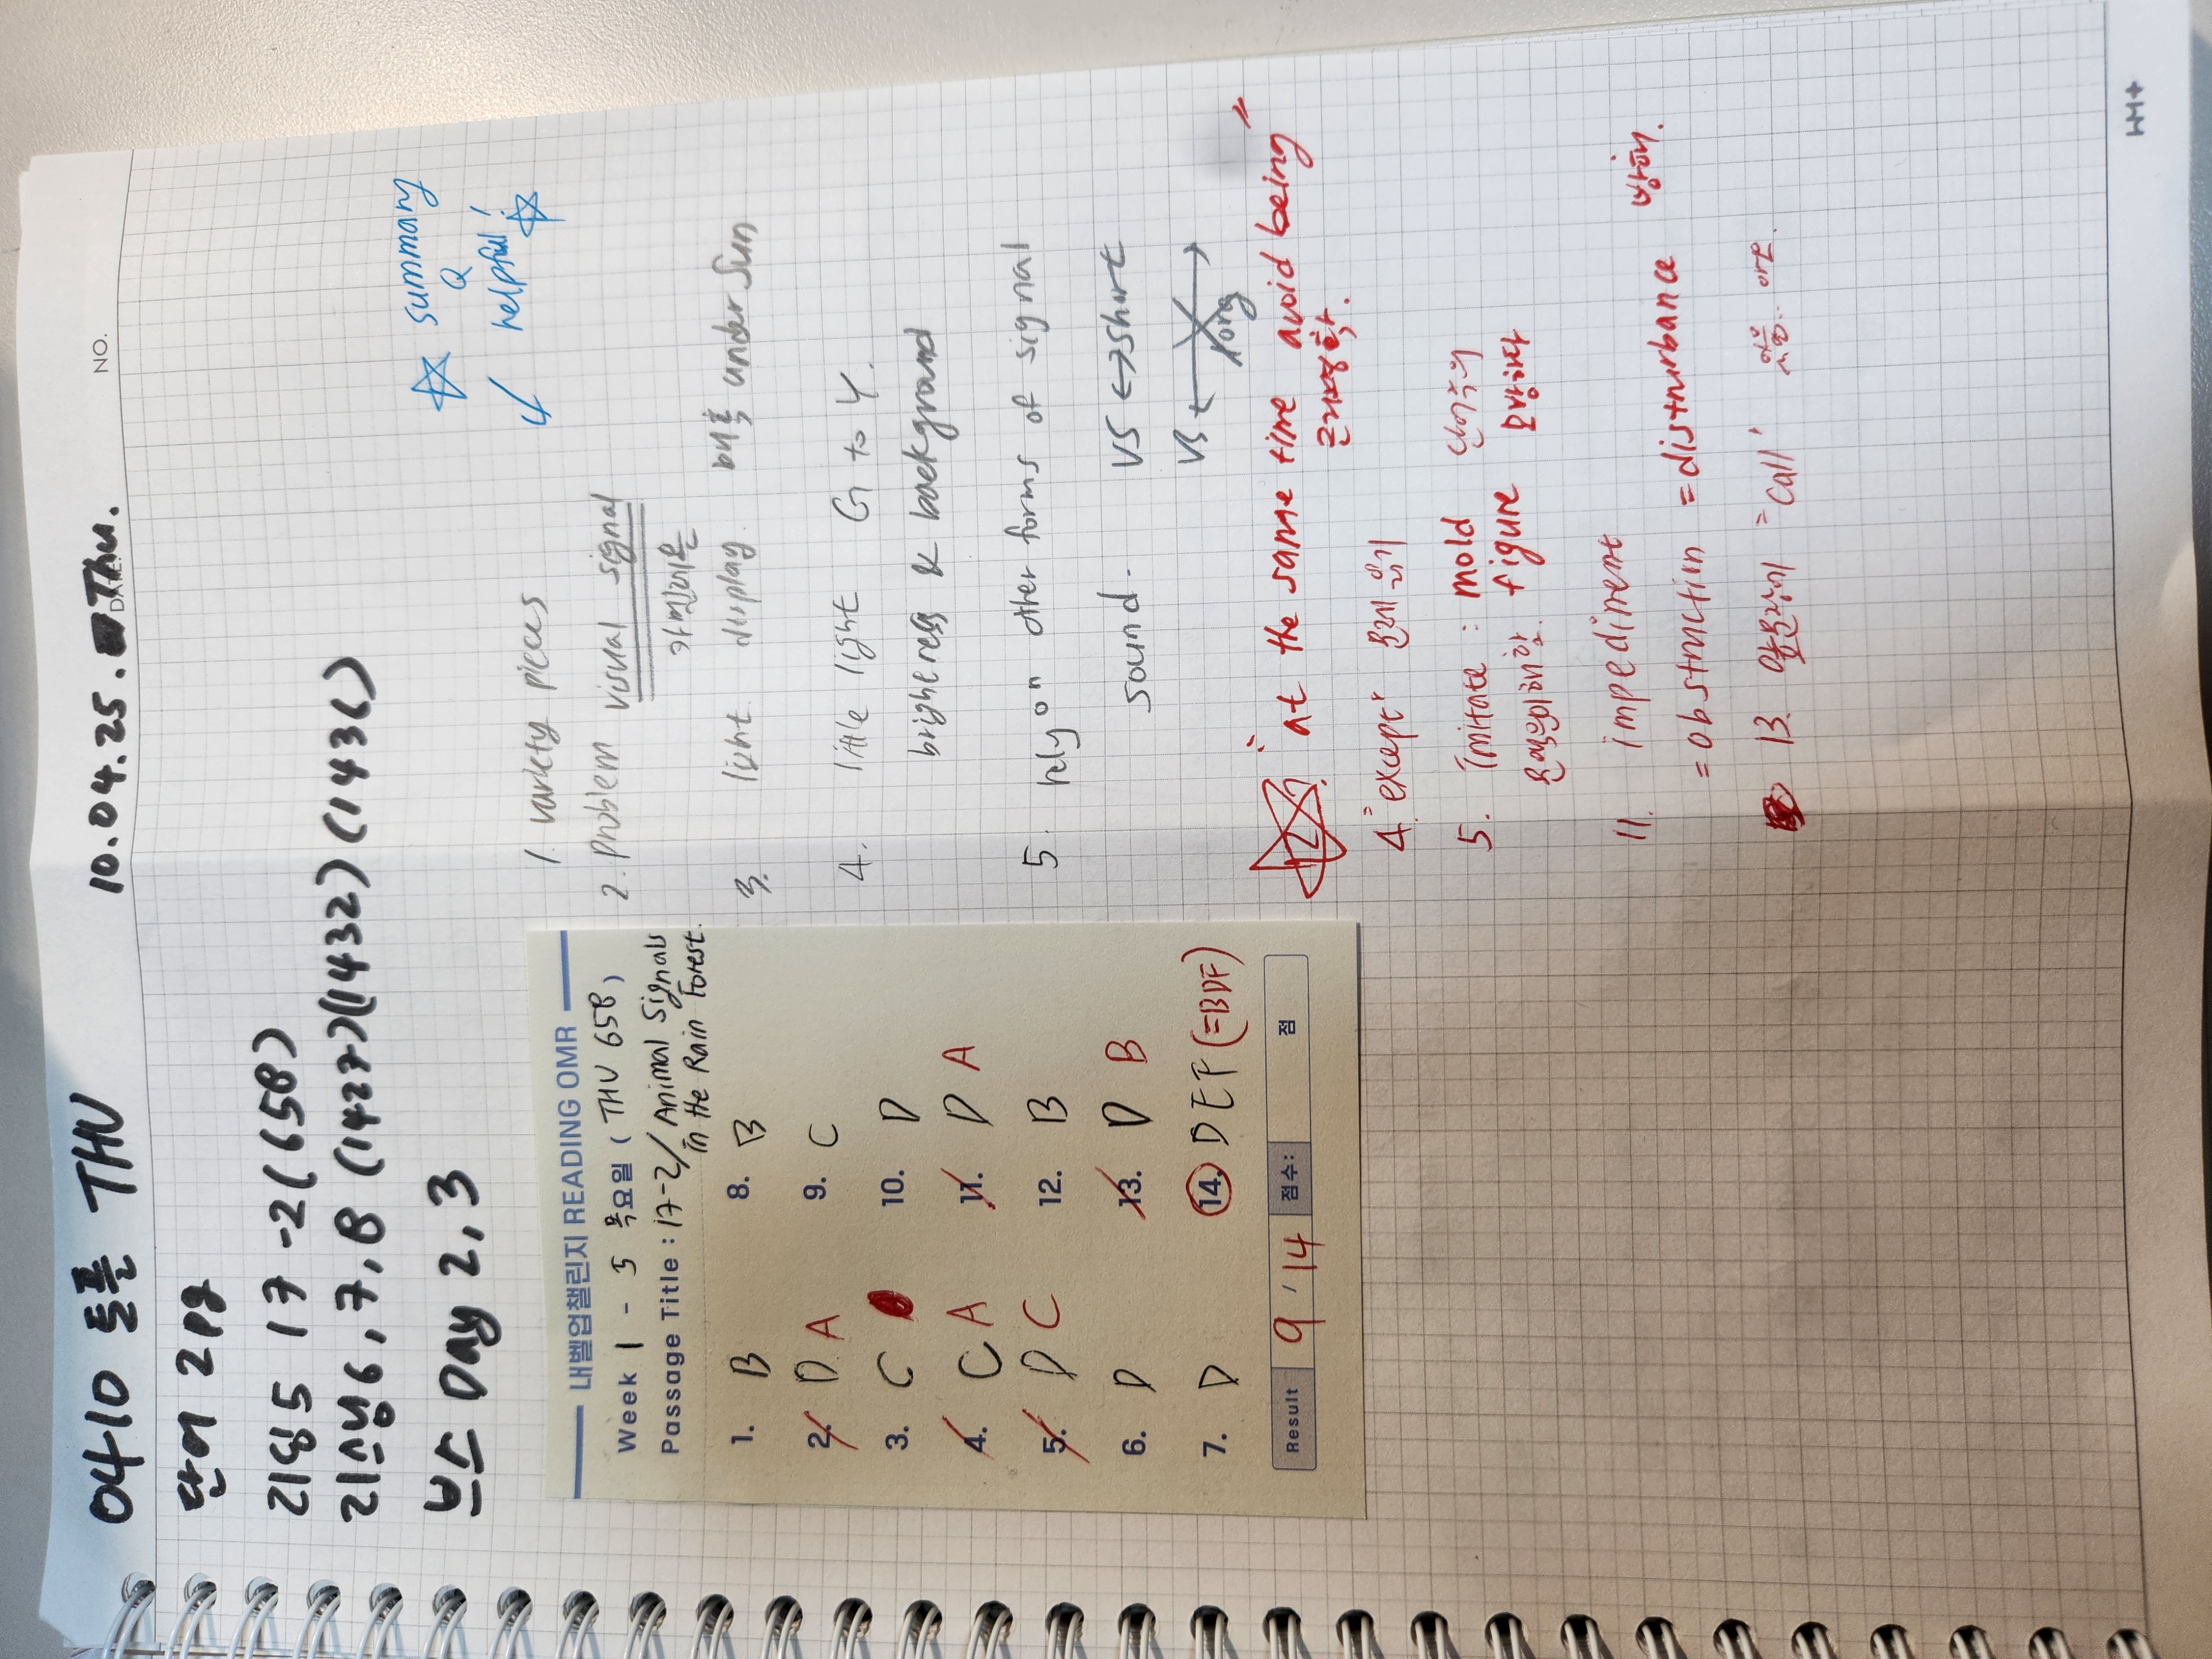 0410 토플 THU
NO.
10.04.25. Thu.
DATE
단어 2pg
리딩 5 17-2 (658)
리스닝 6, 7, 8 (1427)(1432)(1436)
보스 Day 2, 3
내벨업챌린지 READING OMR
Week 1 - 5 목요일 (THU 658)
Passage Title : 17-2/ Animal Signals
in the Rain Forest.
1. B
2. D A
3. C
4. C A
5. D C
6. D
7. D
8. B
9. C
10. D
11. D A
12. B
13. D B
14. DEF (=BDF)
Result 9 / 14 점수: 점
☆ summary
Q
↙ helpful! ☆
1. variety pieces
2. problem visual signal
3. light display 매혹 under Sun
4. little light G to Y.
brighteness & background
5. rely on other forms of signal
sound. VS ↔ short
VS ↔ long
☆ 2. "at the same time avoid being"
4. "except" 문제 유의
5. imitate : mold 만이주의
figure 모방하다
11. impediment
= obstruction = disturbance 방해.
13. 앞문장에 "call"